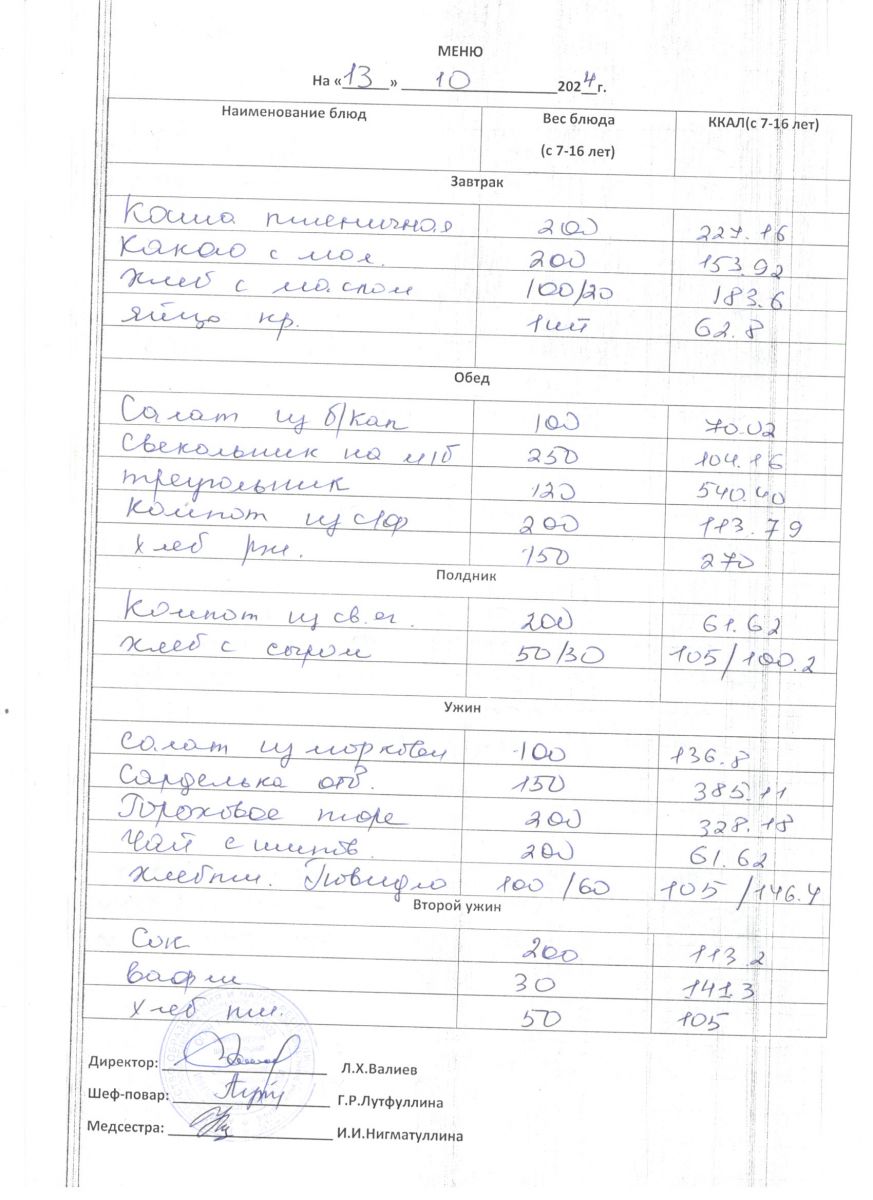 МЕНЮ
На «13» 10 2024г.
Наименование блюд Вес блюда (с 7-16 лет) ККАЛ(с 7-16 лет)
Завтрак
Каша пшеничная 200 227.16
Какао с мол. 200 153.92
Хлеб с маслом 100/20 183.6
яйцо кр. 1шт 62.8
Обед
Салат из б/кап 100 70.02
Свекольник на м/б 250 104.16
треугольник 120 540.40
Компот из с/ф 200 113.79
Хлеб рж. 150 270
Полдник
Компот из св.яг. 200 61.62
Хлеб с сыром 50/30 105/100.2
Ужин
Салат из моркови 100 136.8
Сарделька отв. 150 385.11
Гороховое пюре 200 328.18
Чай с шипов. 200 61.62
Хлеб пш. Повидло 100/60 105/146.4
Второй ужин
Сок 200 113.2
вафли 30 141.3
Хлеб пш. 50 105
Директор: Л.Х.Валиев
Шеф-повар: Г.Р.Лутфуллина
Медсестра: И.И.Нигматуллина